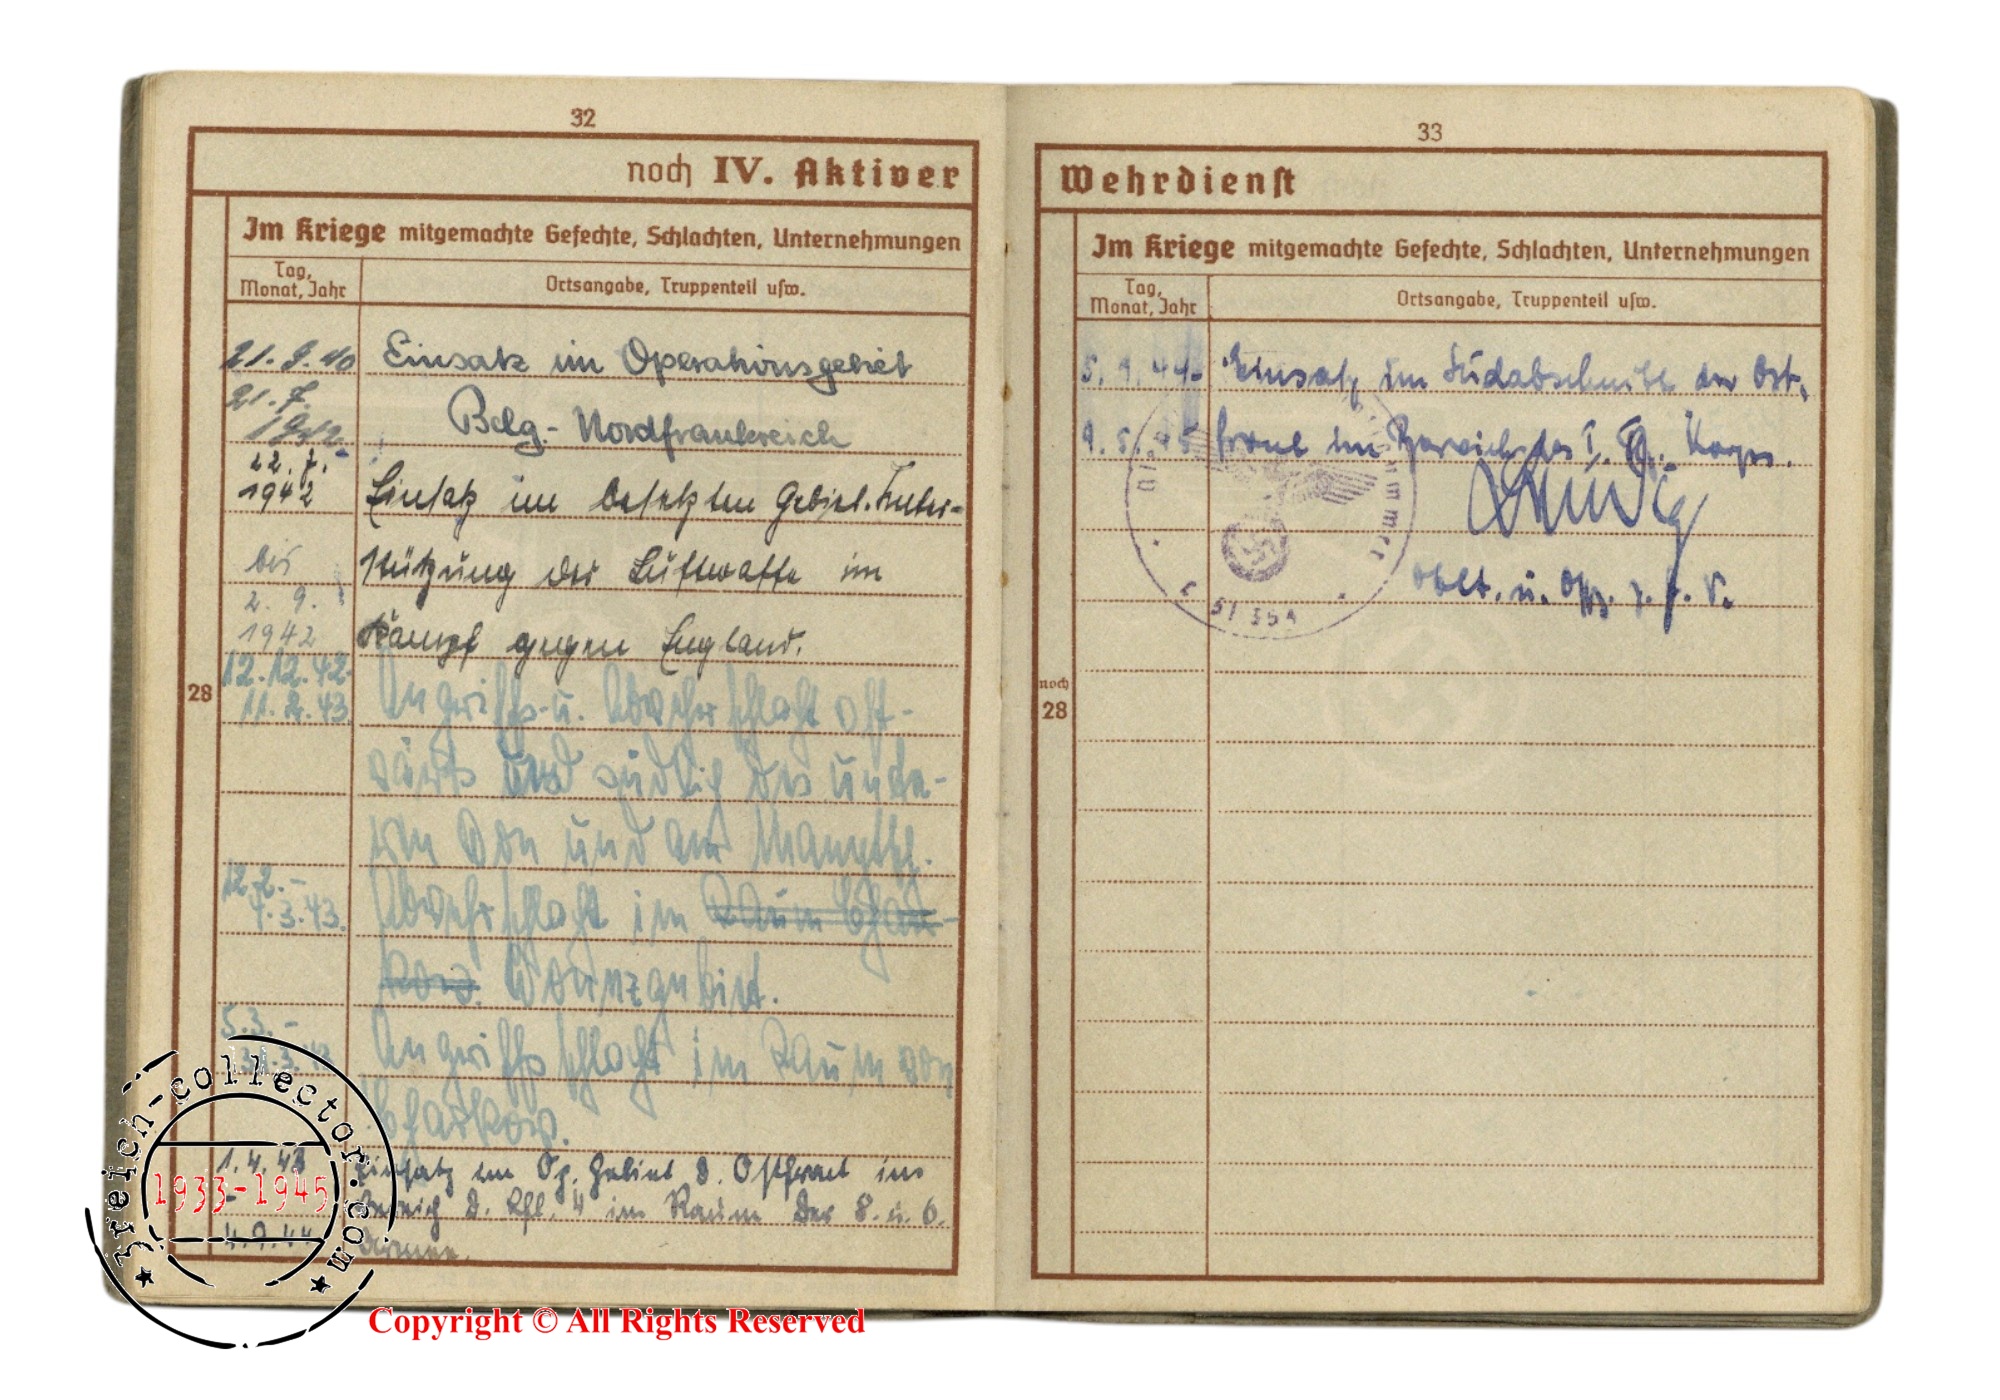 32
noch IV. Aktiver
Im Kriege mitgemachte Gefechte, Schlachten, Unternehmungen
Tag, Monat, Jahr
Ortsangabe, Truppenteil usw.
21.9.40 Einsatz im Operationsgebiet
21.7.
1942 Belg.- Nordfrankreich
22.7.
1942 Einsatz im besetzten Gebiet. Unter-
bis stützung der Luftwaffe im
2.9.
1942 Kampf gegen England.
28
12.12.42-
11.2.43 Angriffs- u. Abwehrschlacht ost-
wärts und südlich des unte-
ren Don und am Manytsch.
12.2.-
4.3.43. Abwehrschlacht im Raum Char-
kow. Donezgebiet.
5.3.-
31.3.43 Angriffsschlacht im Raum von
Charkow.
1.4.43 Einsatz im Op. Gebiet d. Ostfront im
- Bereich d. Lfl. 4 im Raum der 8. u. 6.
4.9.44 Armee.
33
Wehrdienst
Im Kriege mitgemachte Gefechte, Schlachten, Unternehmungen
Tag, Monat, Jahr
Ortsangabe, Truppenteil usw.
5.9.44- Einsatz im Südabschnitt der Ost-
9.5.45 front im Bereich des I. Korps.
Oblt. u. Offz. z. b. V.
L 51354
noch
28
3reich-collector.com
1933-1945
Copyright © All Rights Reserved